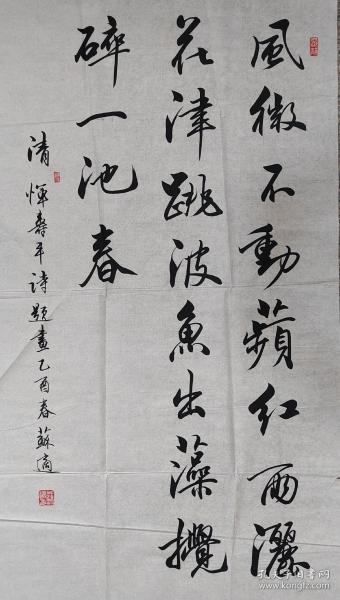 風微不動蘋紅雨灑
花津跳波魚出藻攪
碎一池春
清惲壽平詩題畫乙酉春蘇適